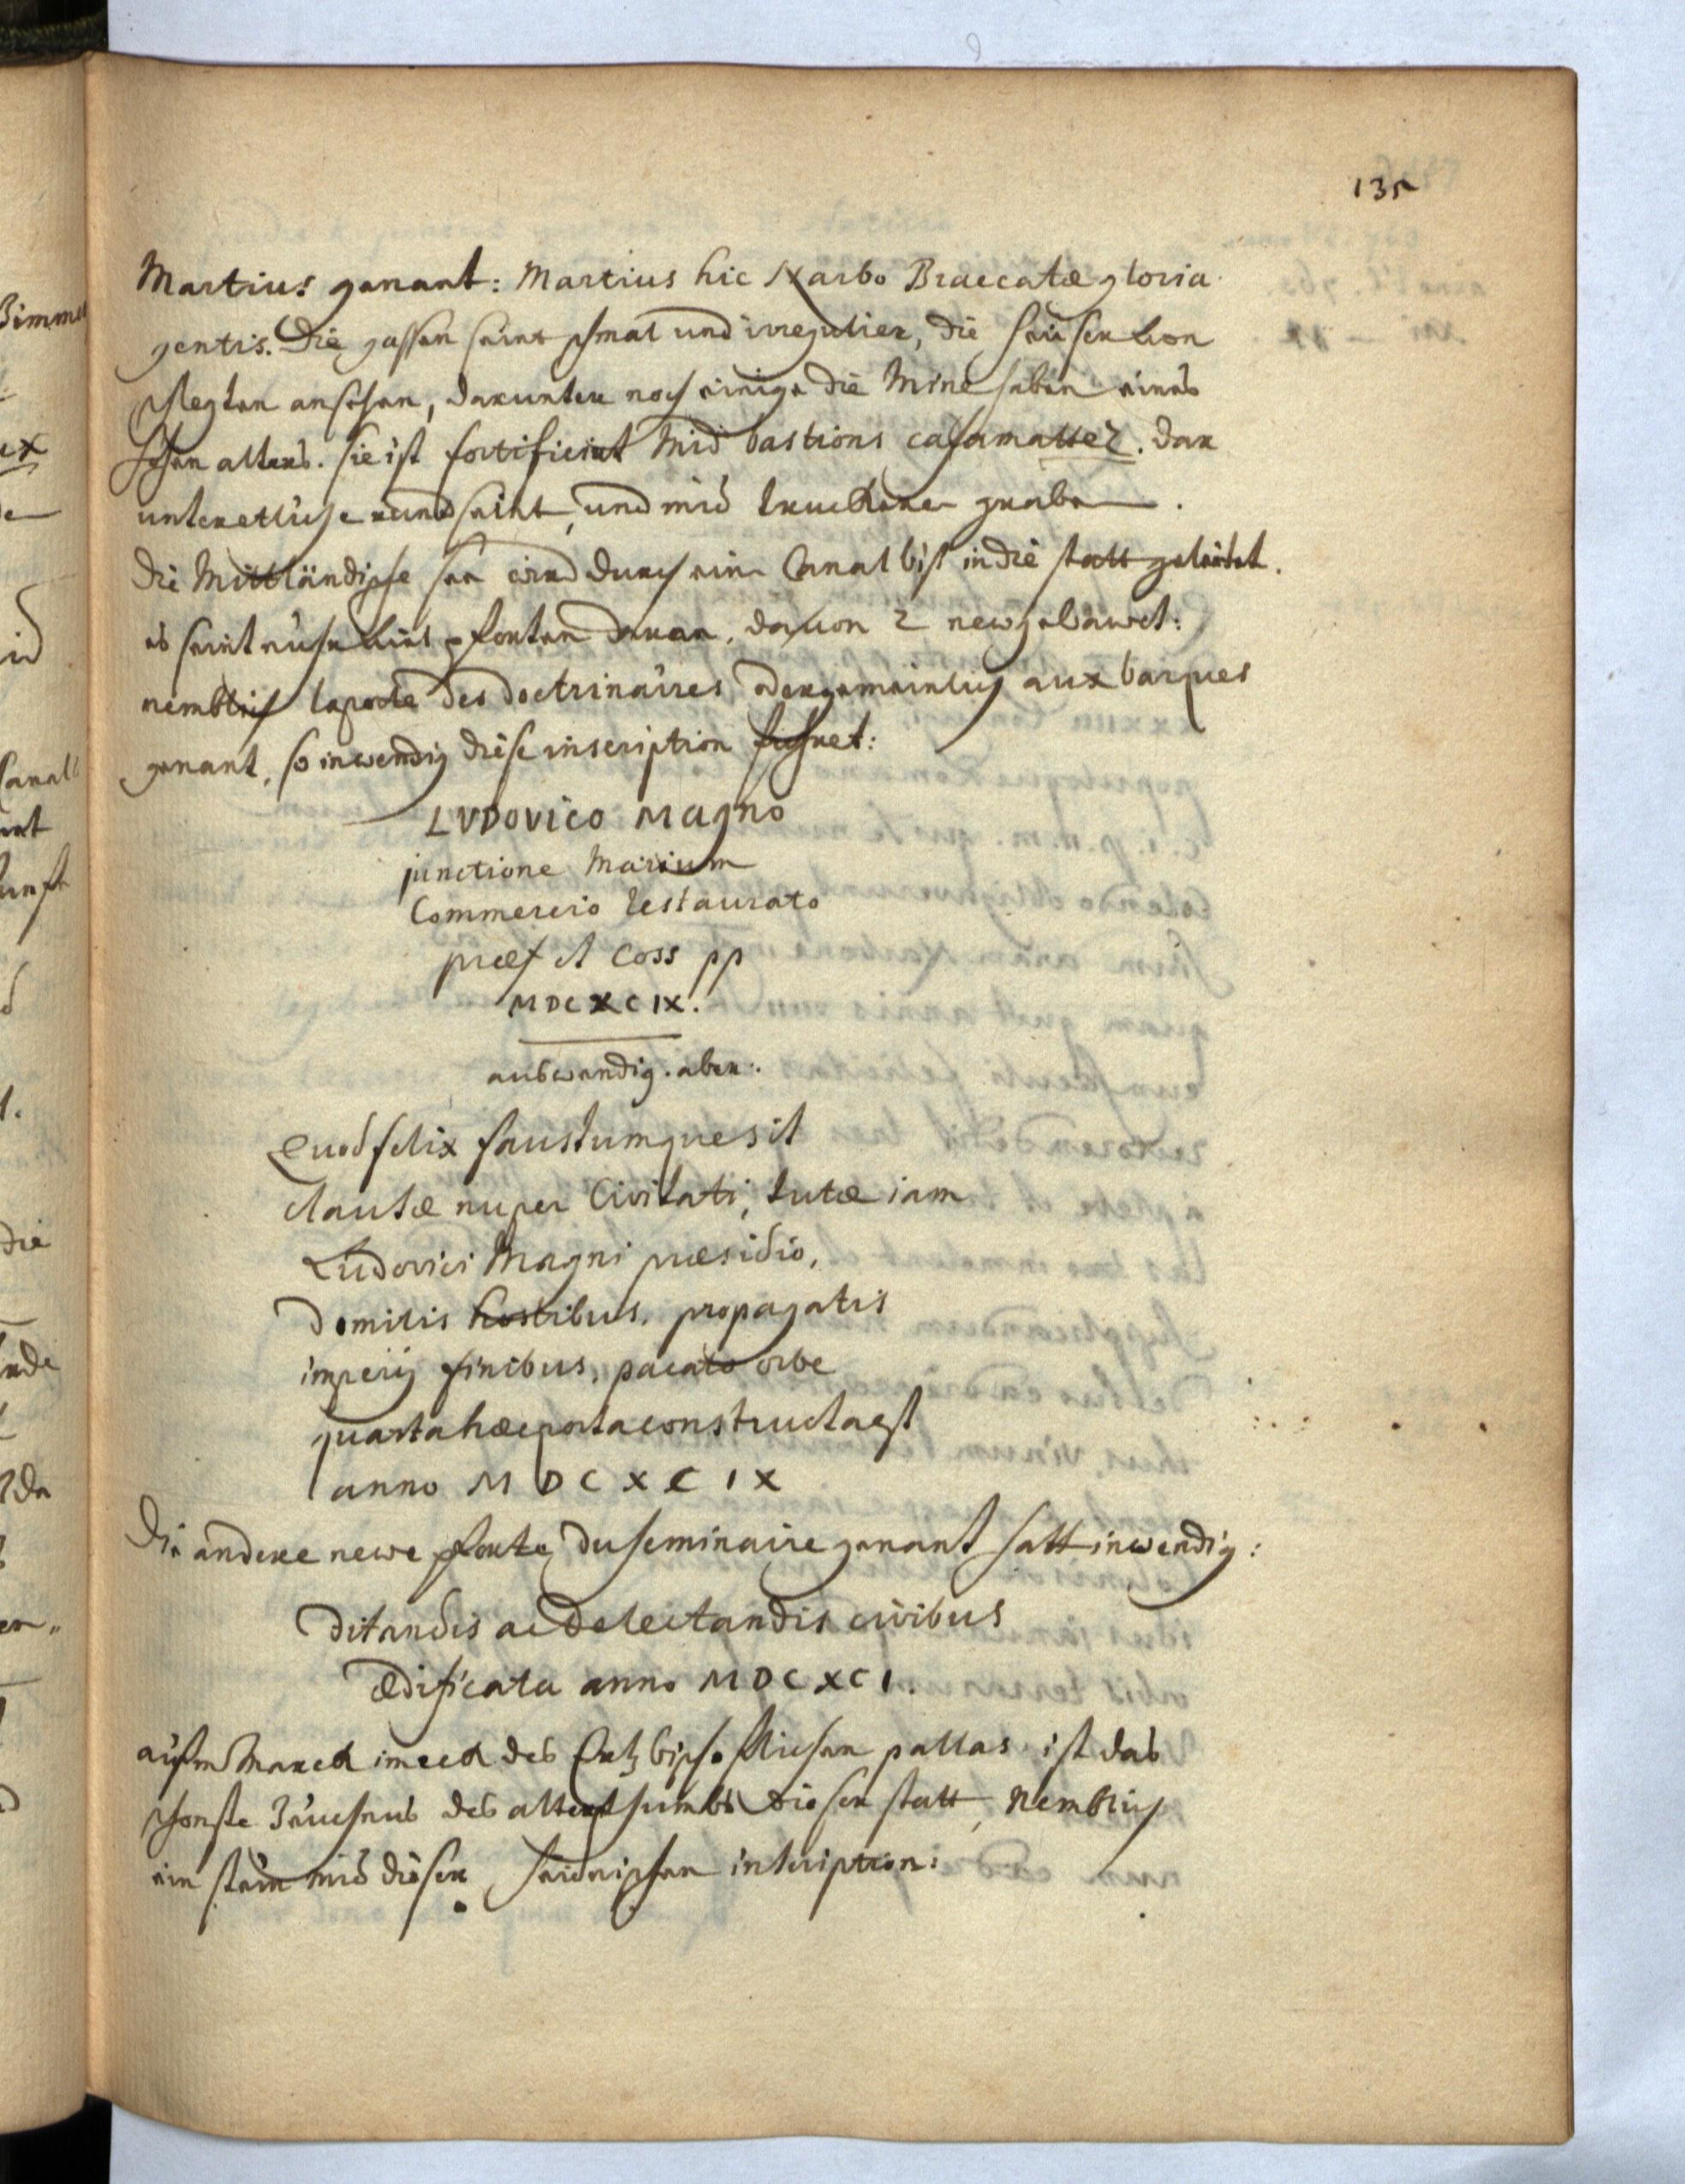 135
Martius genant: Martius hic Narbo Braccatæ gloria
gentis. Die gassen seint schmal und irregulier, die heüser von
schlegten ansehen, darunter noch einige die Mine haben eines
hohen alters. sie ist fortificirt mid bastions casamattez. dar
unter etliche rund seint, und mid truckener graben.
die Mittländische see wird durch ein Canal bisz in die statt geleitet.
es seint nuhr vier pforten daran, davon 2 new gebauwet:
nemblich la porte des doctrinaires oder gemeinlich aux barques
genant, so inwendig diese inscription fuhret:
LVDOVICO MAgno
junctione Marium
Commercio restaurato
præf et Coss pp
MDCXCIX.
auswendig aber:
Quod felix faustumque sit
clausæ nuper Civitati, tutæ iam
Ludovici Magni præsidio,
domitis hostibus, propagatis
imperij finibus, pacato orbe
quarta hæc porta constructa est
anno MDCXCIX
Die andere newe pforte, du seminaire genant hatt inwendig:
Ditandis ac delectandis civibus
ædificata anno MDCXCI.
aufm Marck im eck des Ertzbischofflichen pallas ist das
schonste Zeuchnus des alterthumbs dieser statt, Nemblich
ein stein mid dieser heidnischen inscription:
Zimmer
Canall
die